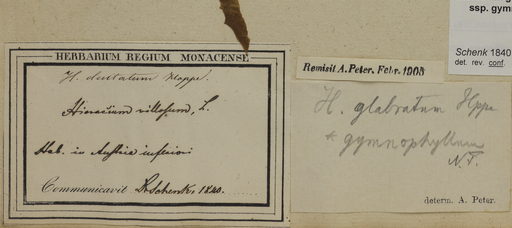 HERBARIUM REGIUM MONACENSE
H. dentatum Hoppe.
Hieracium villosum, L.
Hab. in Austria inferiori
Communicavit Dr. Schenk, 1840.
Remisit A. Peter, Febr. 1905
H. glabratum Hppe
* gymnophyllum
N.P.
determ. A. Peter.
ssp. gym
Schenk 1840
det. rev. conf.